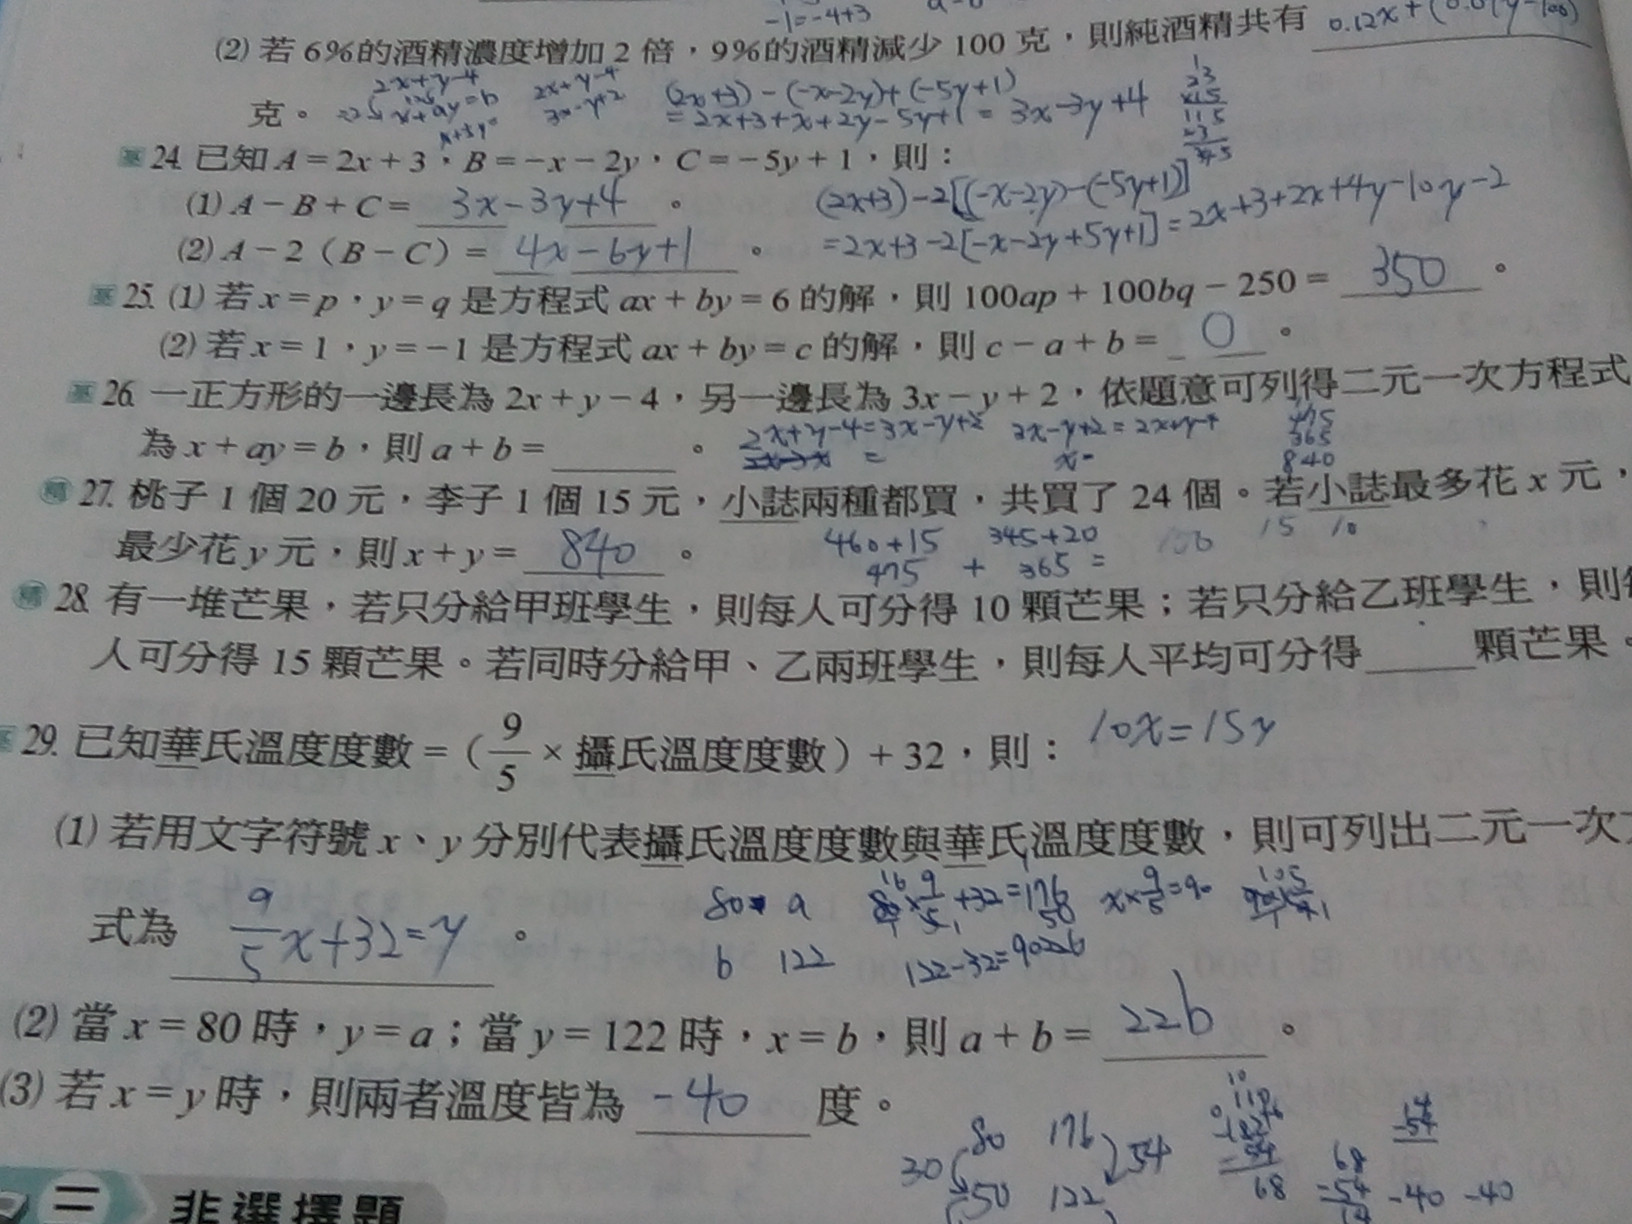 -1=-4+3
(2) 若 6%的酒精濃度增加 2 倍，9%的酒精減少 100 克，則純酒精共有
克。
2x+y-4
3x-y+2
(2x+3)-(-x-2y)+(-5y+1)
=2x+3+x+2y-5y+1=3x-3y+4
基 24. 已知 A＝2x＋3，B＝－x－2y，C＝－5y＋1，則：
(1) A－B＋C＝ 3x-3y+4 。
(2x+3)-2[(-x-2y)-(-5y+1)]
(2) A－2（B－C）＝ 4x-6y+1 。
=2x+3-2[-x-2y+5y+1]=2x+3+2x+4y-10y-2
基 25. (1) 若 x＝p，y＝q 是方程式 ax＋by＝6 的解，則 100ap＋100bq－250＝ 350 。
(2) 若 x＝1，y＝－1 是方程式 ax＋by＝c 的解，則 c－a＋b＝ 0 。
基 26. 一正方形的一邊長為 2x＋y－4，另一邊長為 3x－y＋2，依題意可列得二元一次方程式
為 x＋ay＝b，則 a＋b＝ 。
2x+y-4=3x-y+2 3x-y+2=2x+y-4
475
365
840
精 27. 桃子 1 個 20 元，李子 1 個 15 元，小誌兩種都買，共買了 24 個。若小誌最多花 x 元，
最少花 y 元，則 x＋y＝ 840 。
460+15 345+20
475 + 365 =
15 10
精 28. 有一堆芒果，若只分給甲班學生，則每人可分得 10 顆芒果；若只分給乙班學生，則每
人可分得 15 顆芒果。若同時分給甲、乙兩班學生，則每人平均可分得 顆芒果。
基 29. 已知華氏溫度度數＝（9/5 × 攝氏溫度度數）＋32，則：
10x=15y
(1) 若用文字符號 x、y 分別代表攝氏溫度度數與華氏溫度度數，則可列出二元一次方
式為 9/5x+32=y 。
80 a
b 122
122-32=90
(2) 當 x＝80 時，y＝a；當 y＝122 時，x＝b，則 a＋b＝ 226 。
(3) 若 x＝y 時，則兩者溫度皆為 -40 度。
80 176
30 54
50 122
68
-54
14
-40 -40
三 非選擇題